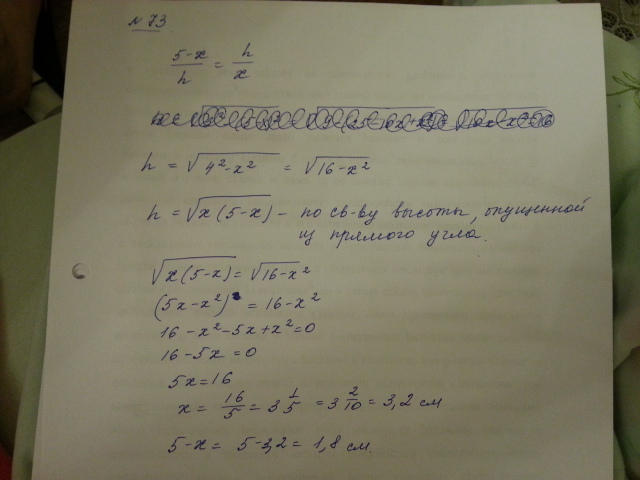 № 73
(5-x)/h = h/x
h = √(4²-x²) = √(16-x²)
h = √(x(5-x)) - по св-ву высоты, опущенной
из прямого угла.
√(x(5-x)) = √(16-x²)
(5x-x²) = 16-x²
16-x²-5x+x²=0
16-5x=0
5x=16
x = 16/5 = 3 1/5 = 3 2/10 = 3,2 см
5-x = 5-3,2 = 1,8 см.